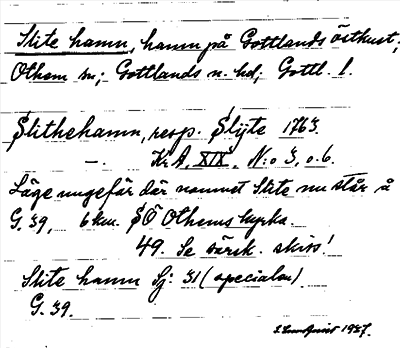 Slite hamn, hamn på Gottlands östkust,
Othem sn; Gottlands n. hd; Gottl. l.
Slithehamn, resp. Slijte 1763.
–. Kr.A, XIX, N:o 3, o.6.
Läge ungefär där namnet Slite nu står å
G. 39, 6 km. SÖ Othems kyrka.
49. Se särsk. skiss!
Slite hamn Sj: 31 (specialen)
G. 39.
1927.